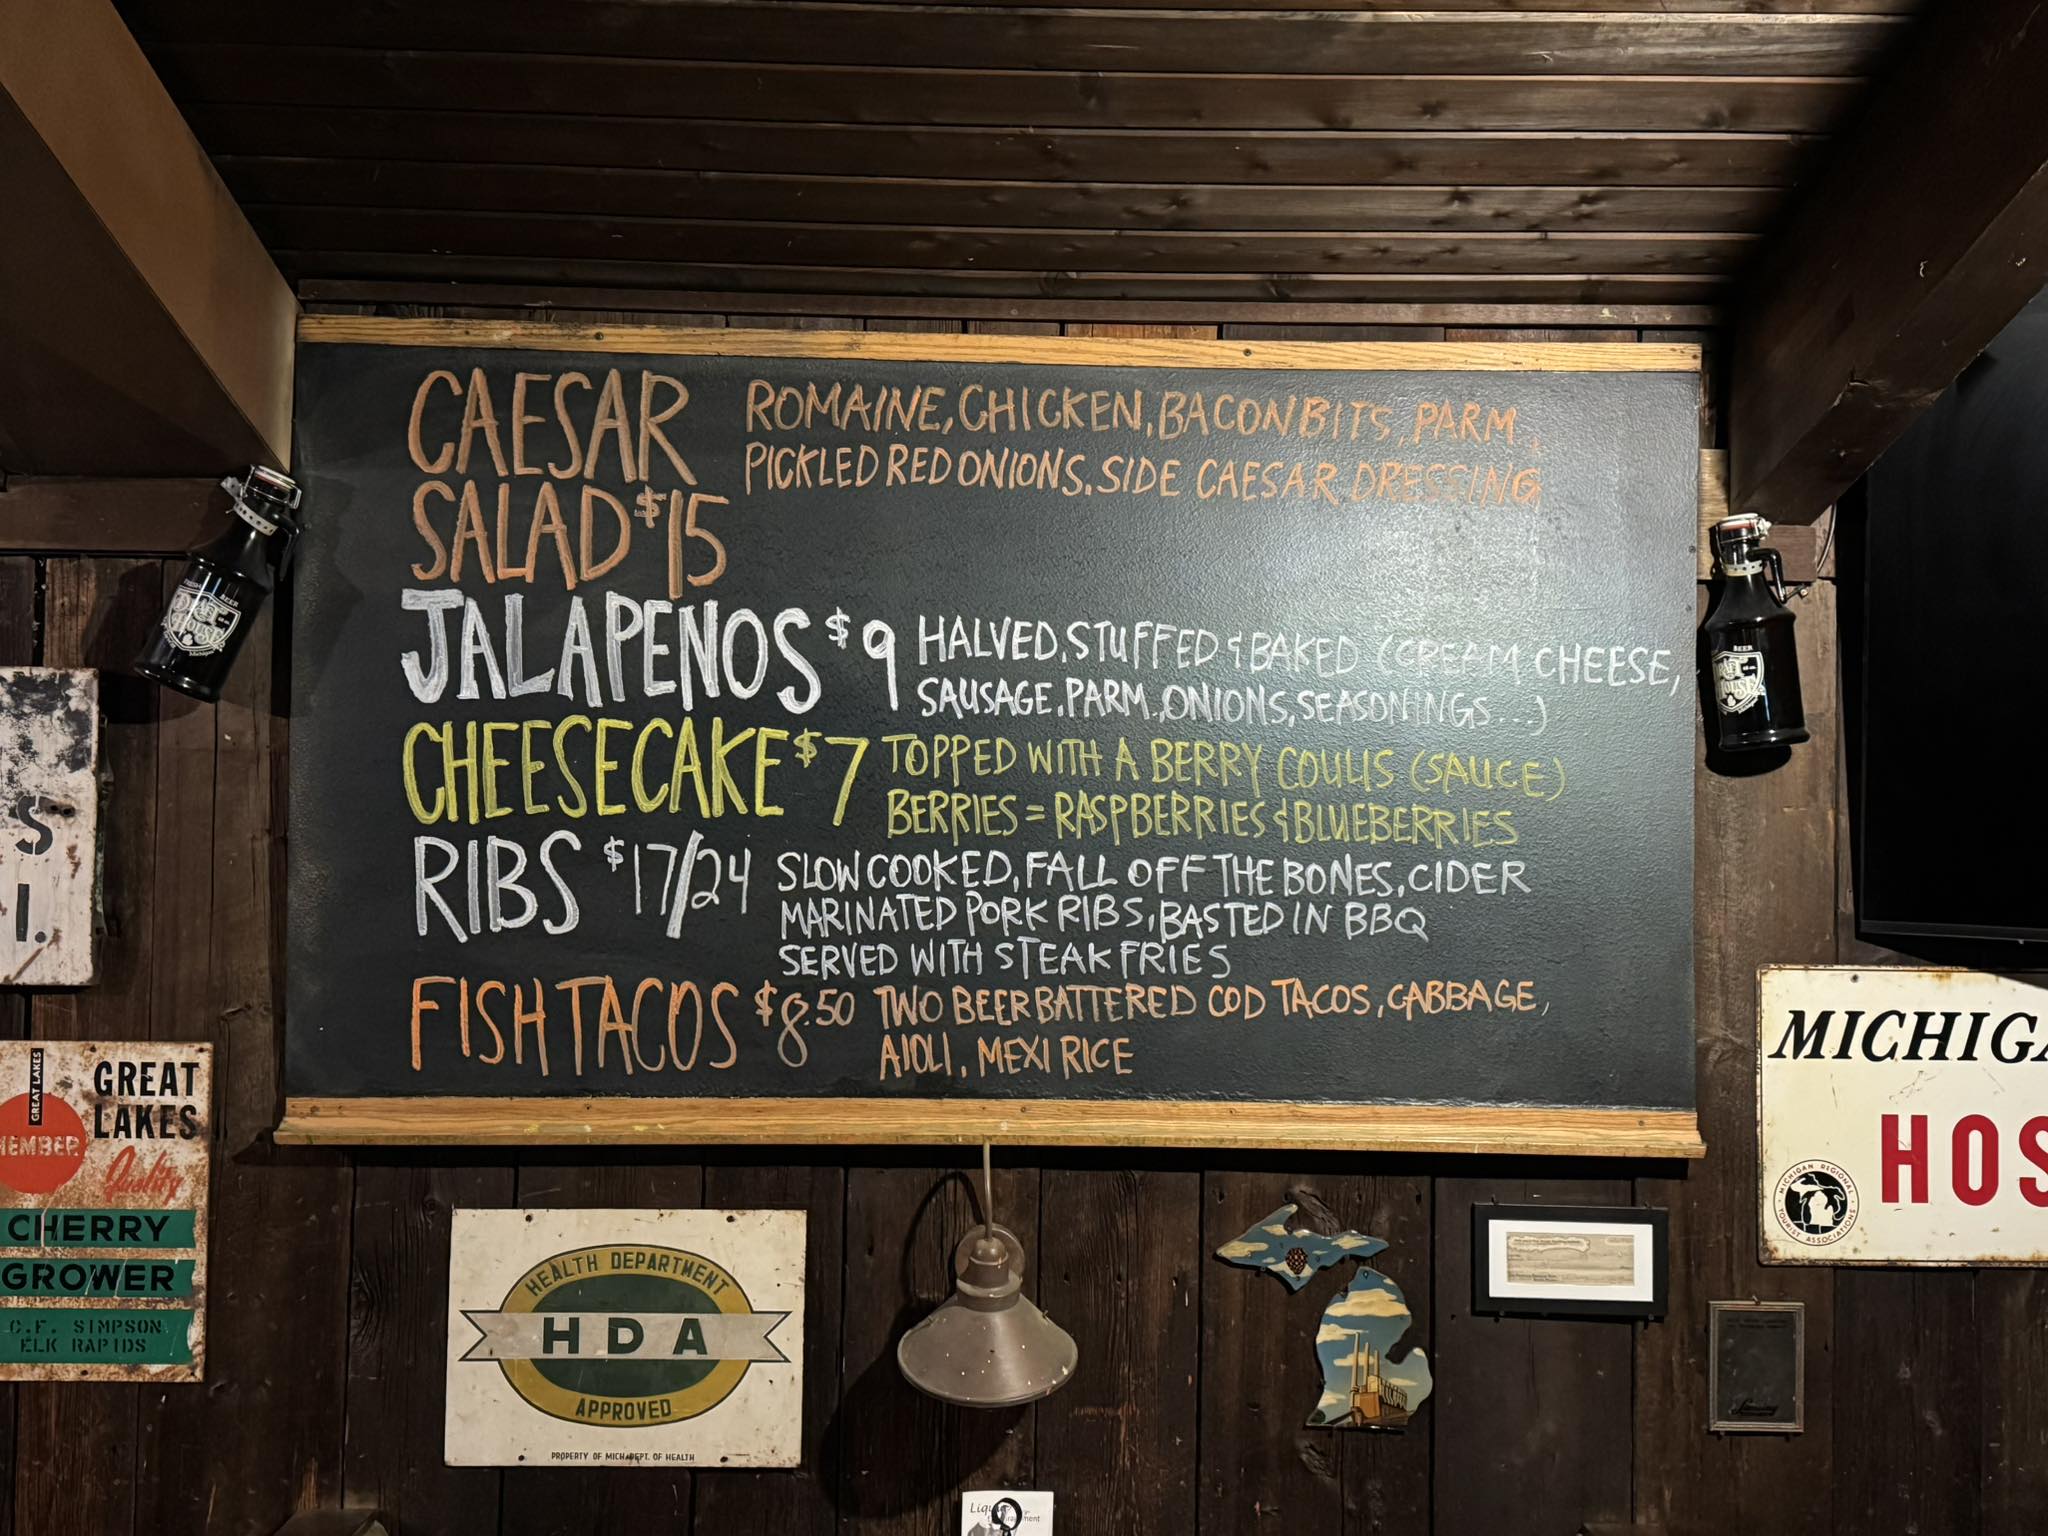 CAESAR
SALAD $15
ROMAINE, CHICKEN, BACON BITS, PARM,
PICKLED RED ONIONS, SIDE CAESAR DRESSING
JALAPENOS $9
HALVED, STUFFED & BAKED (CREAM CHEESE,
SAUSAGE, PARM, ONIONS, SEASONINGS...)
CHEESECAKE $7
TOPPED WITH A BERRY COULIS (SAUCE)
BERRIES = RASPBERRIES & BLUEBERRIES
RIBS $17/24
SLOW COOKED, FALL OFF THE BONES, CIDER
MARINATED PORK RIBS, BASTED IN BBQ
SERVED WITH STEAK FRIES
FISH TACOS $8.50
TWO BEER BATTERED COD TACOS, CABBAGE,
AIOLI, MEXI RICE
BEER
DRAFT
HOUSE
Michigan
BEER
HOUSE
S
I.
GREAT LAKES
MEMBER
GREAT
LAKES
Quality
CHERRY
GROWER
C.F. SIMPSON
ELK RAPIDS
HEALTH DEPARTMENT
HDA
APPROVED
PROPERTY OF MICH. DEPT. OF HEALTH
MICHIGA
HOS
MICHIGAN REGIONAL
TOURIST ASSOCIATIONS